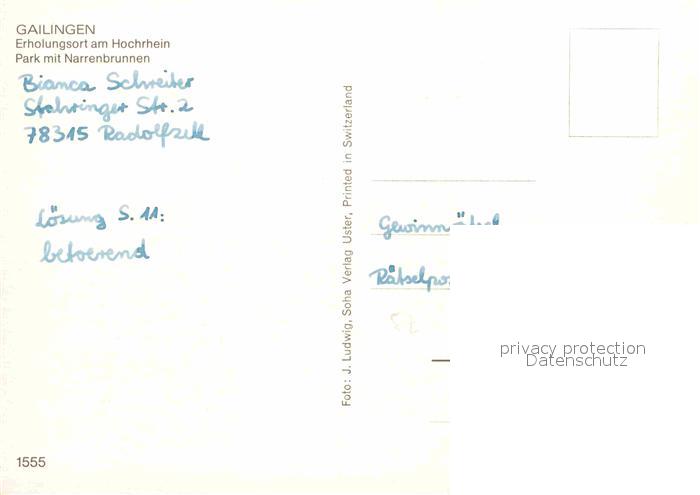 GAILINGEN
Erholungsort am Hochrhein
Park mit Narrenbrunnen
Bianca Schreiber
Stahringer Str. 2
78315 Radolfzell
Lösung S. 11:
betoerend
1555
Foto: J. Ludwig, Soha Verlag Uster, Printed in Switzerland
Rätselpo
privacy protection
Datenschutz